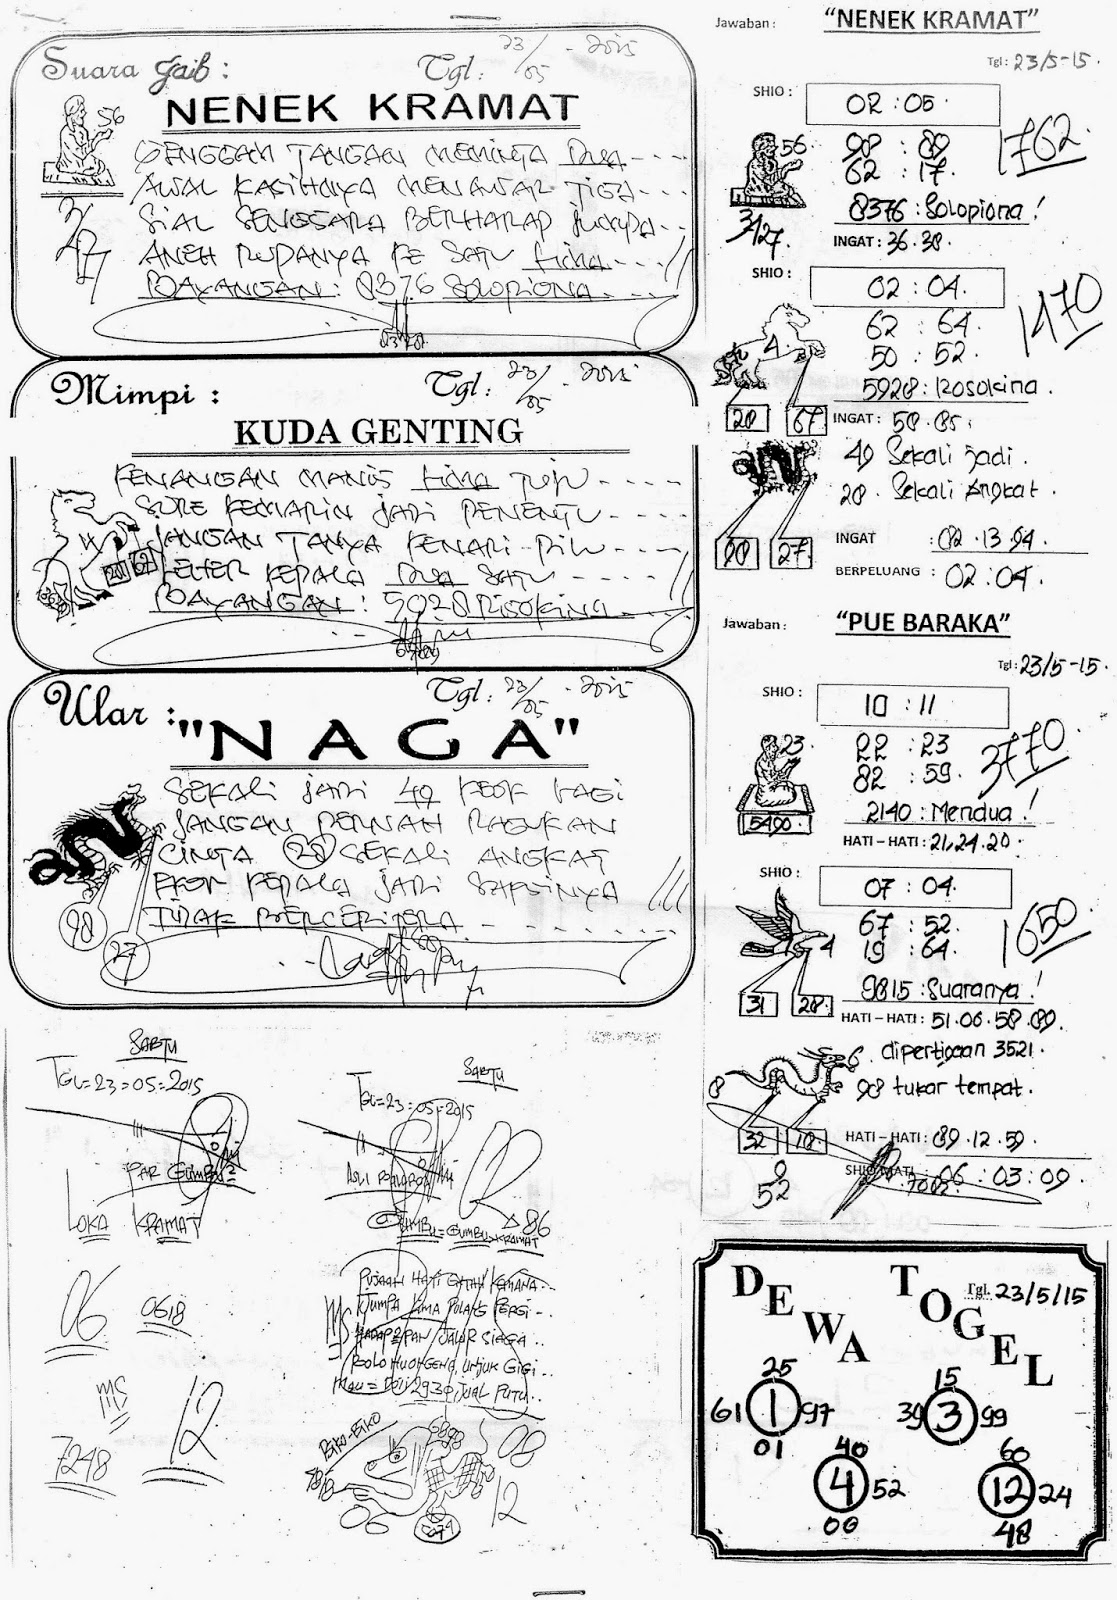 Suara Gaib :
Tgl : 23/05 - 2015
NENEK KRAMAT
56
GENGGAM TANGAN MEMINTA DUA ----
AWAL KASIHNYA MENAWAR TIGA ---
SIAL SENGSARA BERHARAP JUMPA --
ANEH RUPANYA KE SATU LIMA ---
BAYANGAN : 8376 SOLOPIONA
3/27
Mimpi :
Tgl : 23/05 - 2015
KUDA GENTING
KENANGAN MANIS LIMA TUJU ----
SORE KEMARIN JADI PENENTU ----
JANGAN TANYA KENARI PILU ----
KEPALA DUA SATU
BAYANGAN : 5928
20 67
Ular :
Tgl : 23/05 - 2015
"NAGA"
SEKALI JADI 49 EKOR LAGI
JANGAN PERNAH RAGUKAN
CINTA 28 SEKALI ANGKAT
EKOR KEPALA JADI SAKSINYA
TIDAK BERCERITERA
98
27
SABTU
TGL = 23 = 05 = 2015
PAK GUMBU 2
LOKA KRAMAT
06
0618
MS
7248
12
SABTU
TGL = 23 = 05 = 2015
ASLI
GUMBU = GUMBU KRAMAT
86
PUJAAN HATI ENTAH KEMANA ..
JUMPA LIMA PULANG PERGI ..
MS
HADAP 2 PAN / JALUR SIAGA ..
UNJUK GIGI
JUAL PUTU ..
08
06
12
Jawaban :
"NENEK KRAMAT"
Tgl : 23/5-15.
SHIO :
02 : 05.
56
98 : 89
62 : 17.
1762
8376 : Solopiona !
3/27.
INGAT : 36. 38.
SHIO :
02 : 04.
62 : 64.
50 : 52.
1470
5928 : Rosokina.
20 67
INGAT : 58. 85.
49 Sekali jadi.
28. Sekali Angkat.
98 27
INGAT : 82. 13. 94.
BERPELUANG : 02 : 04.
Jawaban :
"PUE BARAKA"
Tgl : 23/5-15.
SHIO :
10 : 11
23
22 : 23
82 : 59.
3770
2140 : Mendua !
5490.
HATI – HATI : 21, 24. 20.
SHIO :
07 : 04.
67 : 52.
19 : 64.
1650
4
9815 : Suaranya !
31 28.
HATI – HATI : 51. 06. 58. 89.
6. dipertigaan 3521.
8
98 tukar tempat.
32 18.
HATI – HATI : 89. 12. 59.
SHIO MATI : 06 : 03 : 09.
52
DEWA TOGEL
Tgl. 23/5/15
25
61 1 97
01
15
39 3 99
40
4 52
00
60
12 24
48